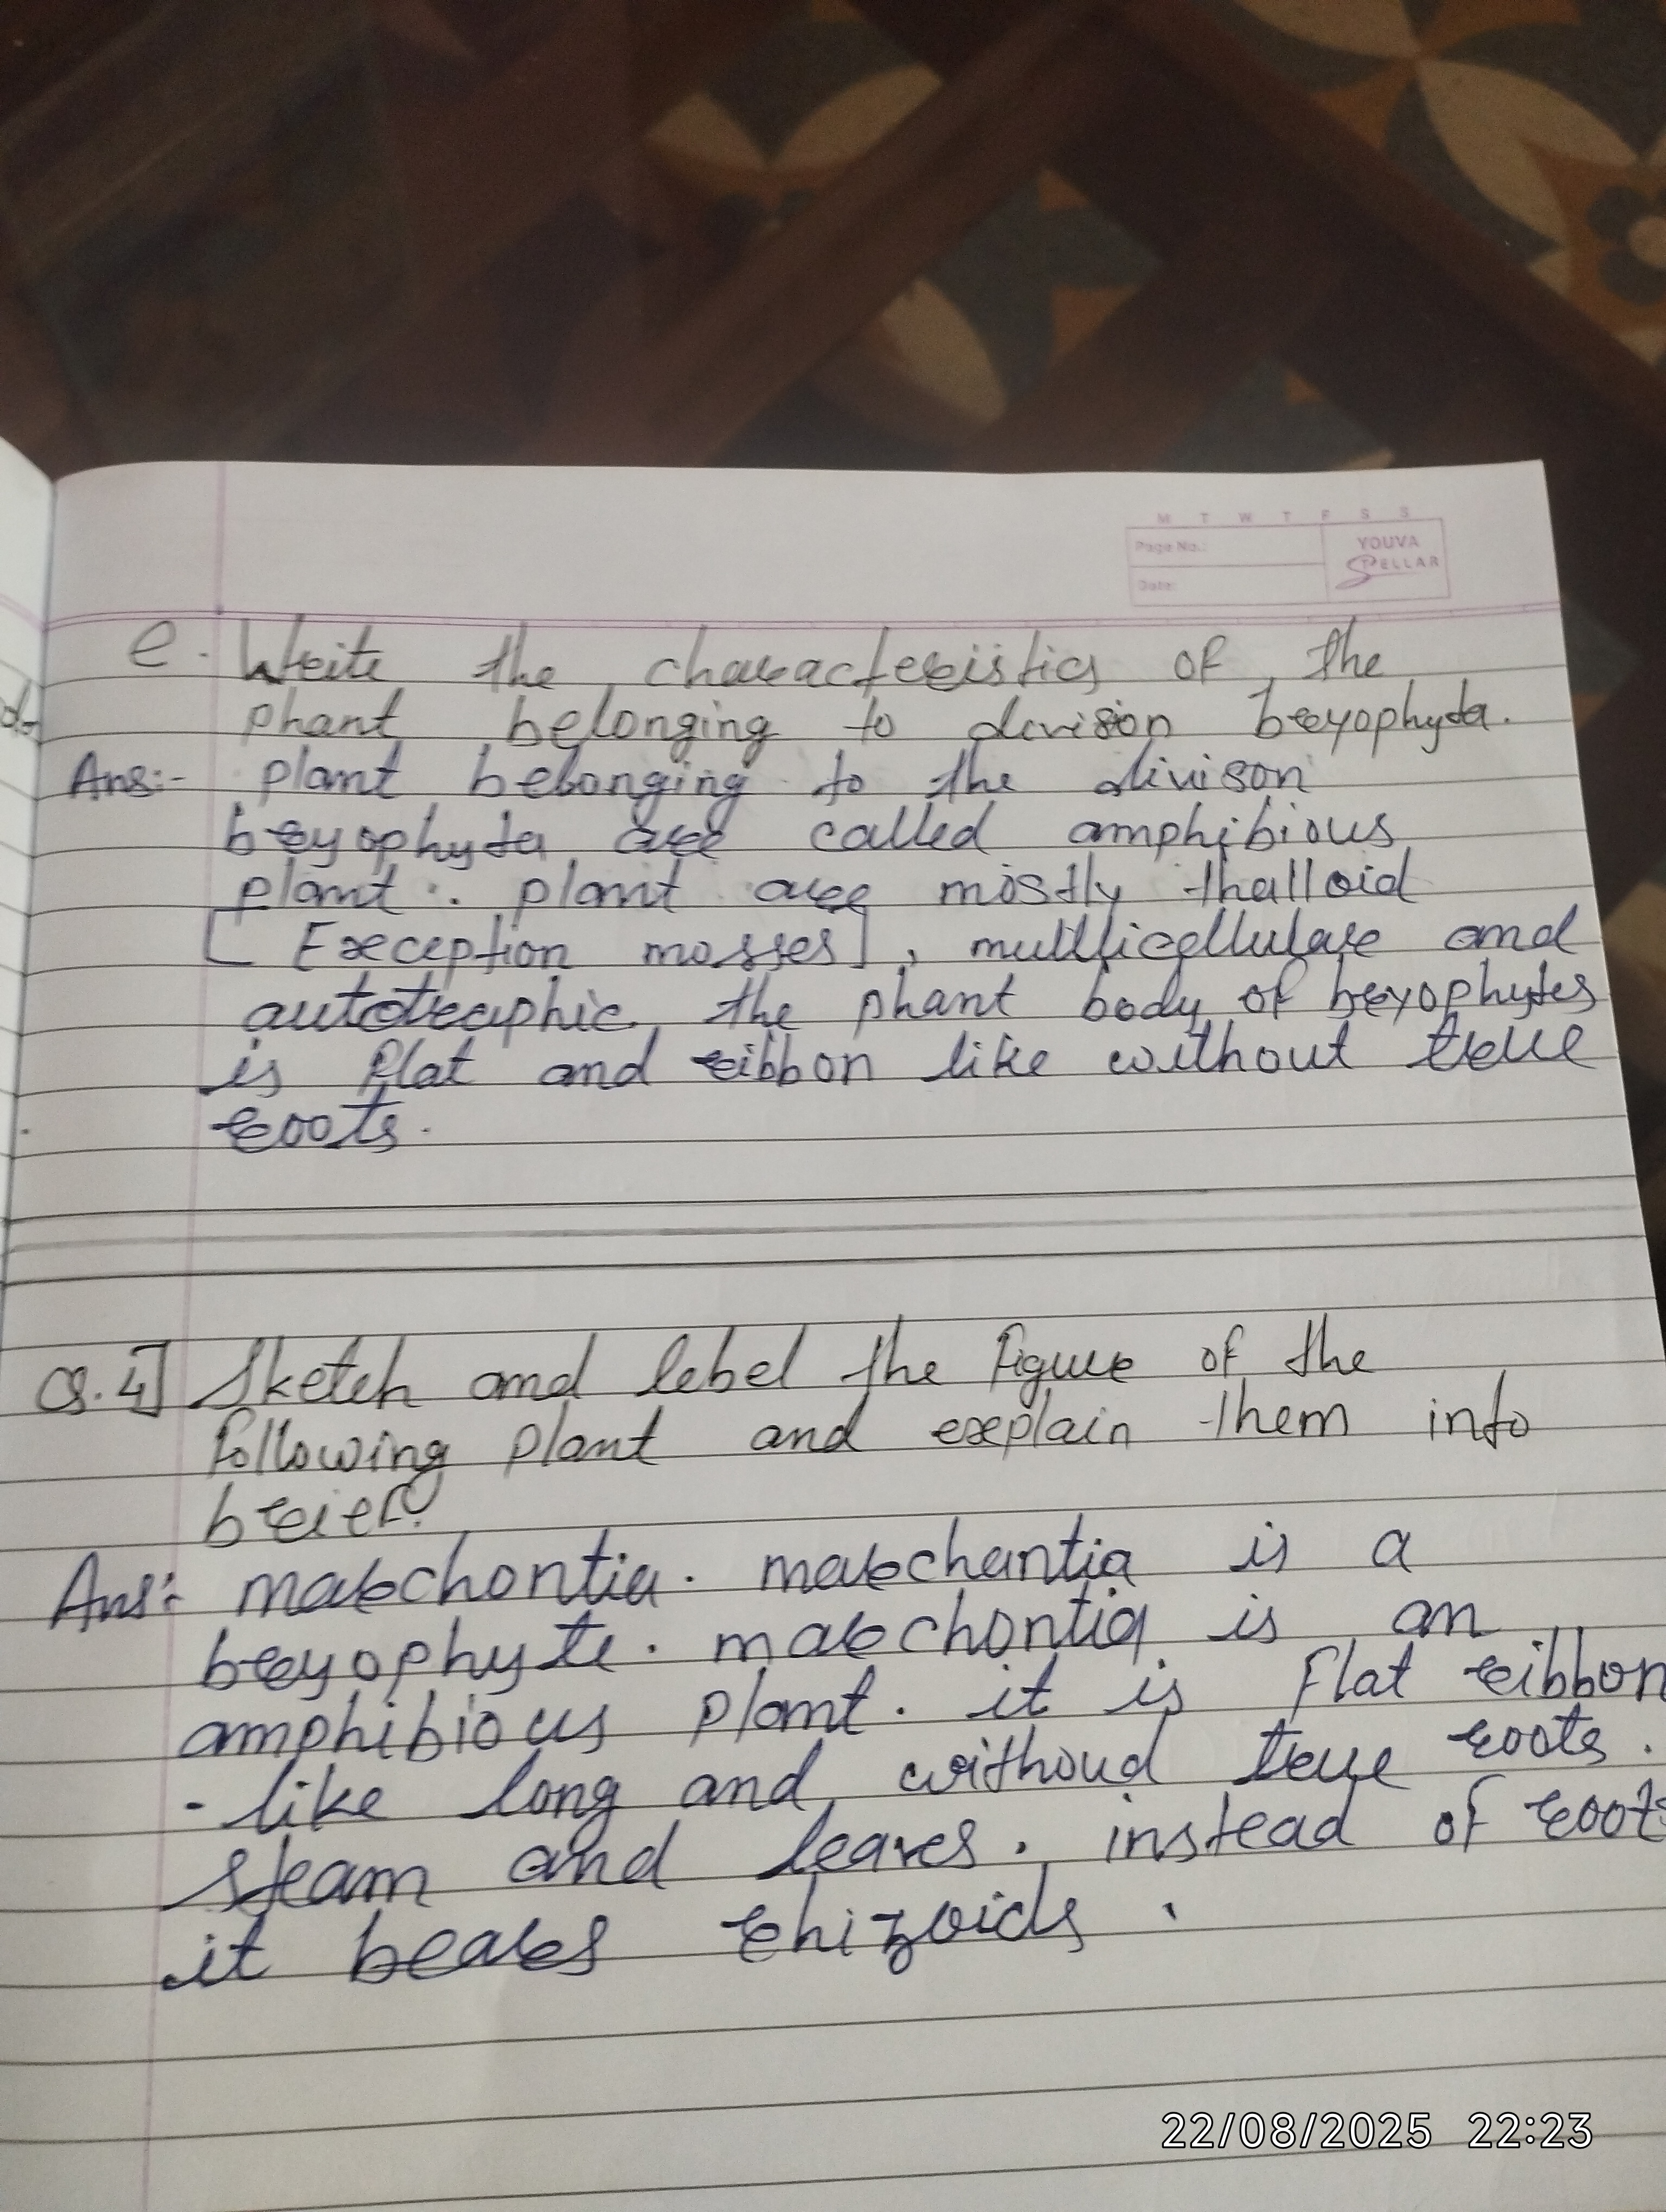 M T W T F S S
Page No.:
Date:
YOUVA
STELLAR
e. Write the characteristics of the
phant belonging to division bryophyta.
Ans:- plant belonging to the divison
bryophyta are called amphibious
plant. plant are mostly thalloid
[Exception mosses], multicellular and
autotraphic the phant body of bryophytes
is flat and ribbon like without true
roots.
Q.4] Sketch and lebel the figure of the
following plant and explain them into
brief?
Ans:- marchontia. marchantia is a
bryophyte. marchontia is an
amphibious plant. it is flat ribbon
- like long and withoud true roots.
steam and leaves. instead of roots
it bears rhizoids.
22/08/2025 22:23